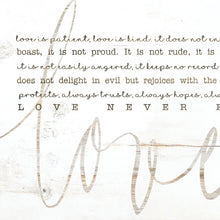 love is patient, love is kind. it does not en
boast, it is not proud. It is not rude, it is
it is not easily angered, it keeps no record
does not delight in evil but rejoices with the
protects, always trusts, always hopes, alwa
LOVE NEVER F
love